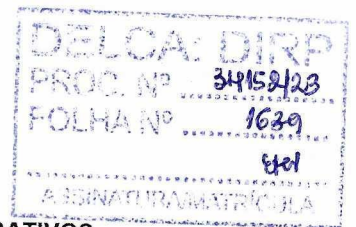 DELCA: DIRP
PROC. Nº 34152/23
FOLHA Nº 1639
ASSINATURA/MATRÍCULA